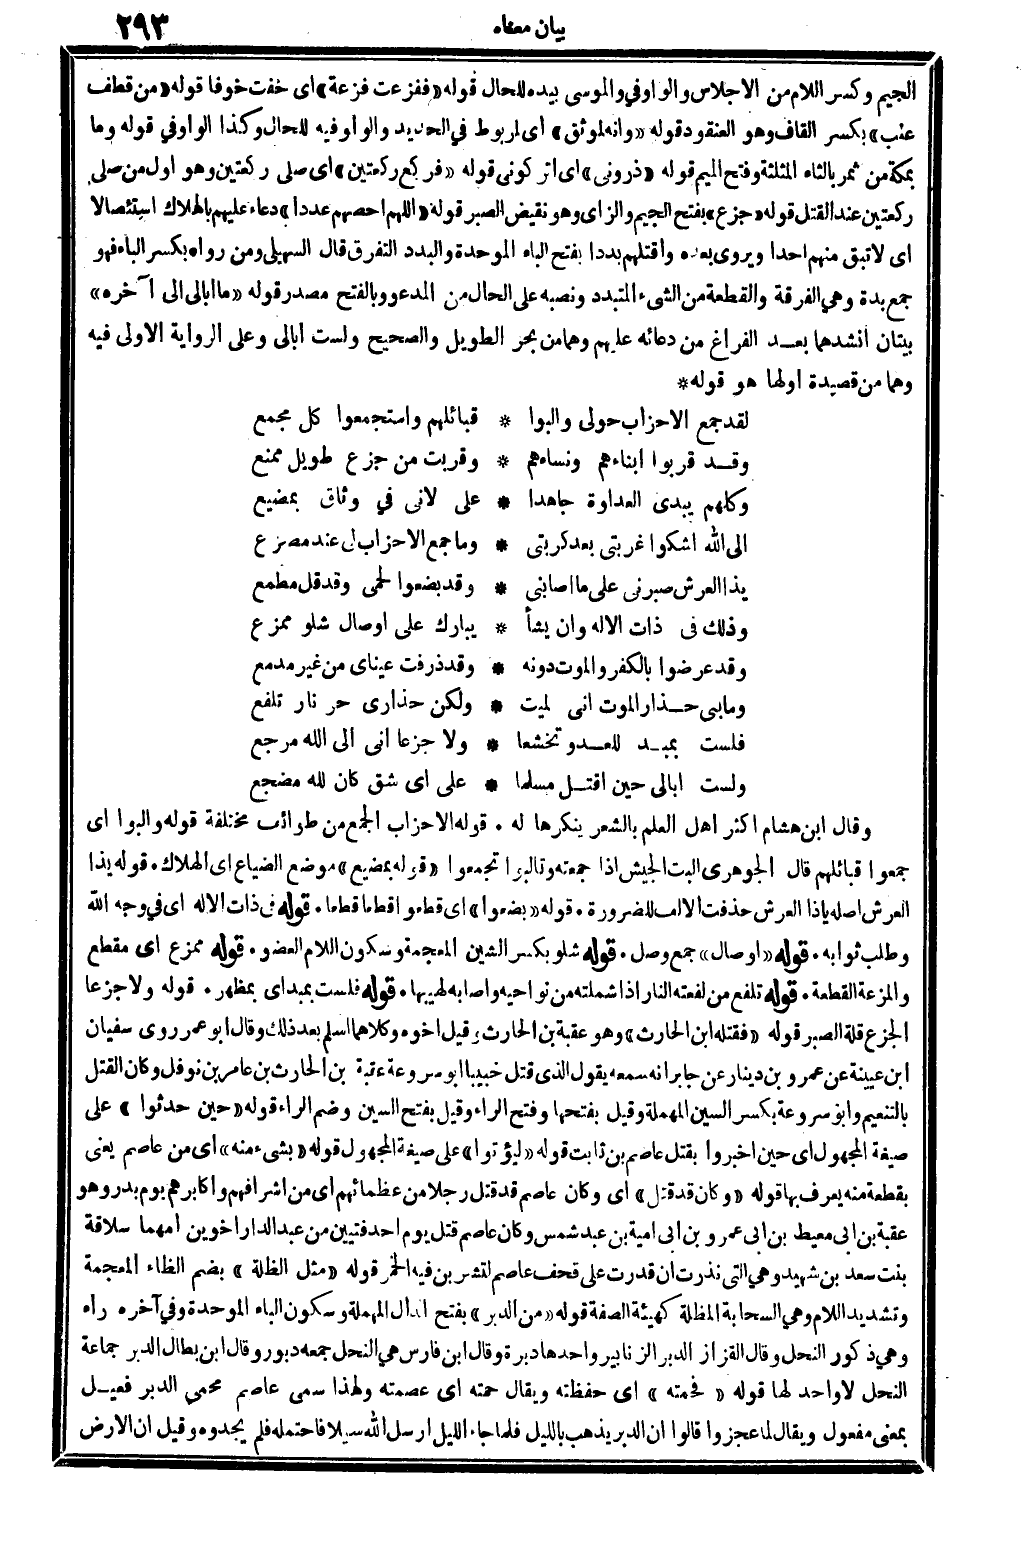 بيان معناه ٢٩٣
الجيم وكسر اللام من الاجلاس والواو في والموسى بيده للحال قوله «ففزعت فزعة» اى خفت خوفا قوله «من قطف
عنب» بكسر القاف وهو العنقود قوله «وانه لموثق» اى لمربوط في الحديد والواو فيه للحال وكذا الواو في قوله وما
بمكة من ثمر بالثاء المثلثة وفتح الميم قوله «ذرونى» اى اتركونى قوله «فركع ركعتين» اى صلى ركعتين وهو اول من صلى
ركعتين عند القتل قوله «جزع» بفتح الجيم والزاى وهو نقيض الصبر قوله «اللهم احصهم عددا» دعاء عليهم بالهلاك استئصالا
اى لا تبق منهم احدا ويروى بعده واقتلهم بددا بفتح الباء الموحدة والبدد التفرق قال السهيلى ومن رواه بكسر الباء فهو
جمع بدة وهي الفرقة والقطعة من الشىء المتبدد ونصبه على الحال من المدعو وبالفتح مصدر قوله «ما ابالى الى آخره»
بيتان انشدهما بعد الفراغ من دعائه عليهم وهما من بحر الطويل والصحيح ولست ابالى وعلى الرواية الاولى فيه
وهما من قصيدة اولها هو قوله *
لقد جمع الاحزاب حولى والبوا * قبائلهم واستجمعوا كل مجمع
وقد قربوا ابناءهم ونساءهم * وقربت من جزع طويل ممنع
وكلهم يبدى العداوة جاهدا * على لانى في وثاق بمضيع
الى الله اشكوا غربتى بعد كربتى * وما جمع الاحزاب لى عند مصرع
يذا العرش صبرنى على ما اصابنى * وقد بضعوا لحمى وقد قل مطمع
وذلك فى ذات الاله وان يشأ * يبارك على اوصال شلو ممزع
وقد عرضوا بالكفر والموت دونه * وقد ذرفت عيناى من غير مدمع
وما بى حذار الموت انى لميت * ولكن حذارى حر نار تلفع
فلست بمبد للعدو تخشعا * ولا جزعا انى الى الله مرجع
ولست ابالى حين اقتل مسلما * على اى شق كان لله مضجع
وقال ابن هشام اكثر اهل العلم بالشعر ينكرها له . قوله الاحزاب الجمع من طوائف مختلفة قوله والبوا اى
جمعوا قبائلهم قال الجوهرى البت الجيش اذا جمعته وتالبوا تجمعوا «قوله بمضيع» موضع الضياع اى الهلاك . قوله يذا
العرش اصله ياذا العرش حذفت الالف للضرورة . قوله «بضعوا» اى قطعوا قطعا قطعا . قوله فى ذات الاله اى في وجه الله
وطلب ثوابه . قوله «اوصال» جمع وصل . قوله شلو بكسر الشين المعجمة وسكون اللام العضو . قوله ممزع اى مقطع
والمزعة القطعة . قوله تلفع من لفعته النار اذا شملته من نواحيه واصابه لهيبها . قوله فلست بمبد اى بمظهر . قوله ولا جزعا
الجزع قلة الصبر قوله «فقتله ابن الحارث» وهو عقبة بن الحارث وقيل اخوه وكلاهما اسلم بعد ذلك وقال ابو عمر روى سفيان
ابن عيينة عن عمرو بن دينار عن جابر انه سمعه يقول الذى قتل خبيبا ابو سروعة عقبة بن الحارث بن عامر بن نوفل وكان القتل
بالتنعيم وابو سروعة بكسر السين المهملة وقيل بفتحها وفتح الراء وقيل بفتح السين وضم الراء قوله «حين حدثوا» على
صيغة المجهول اى حين اخبروا بقتل عاصم بن ثابت قوله «ليؤتوا» على صيغة المجهول قوله «بشىء منه» اى من عاصم يعنى
بقطعة منه يعرف بها قوله «وكان قد قتل» اى وكان عاصم قد قتل رجلا من عظمائهم اى من اشرافهم واكابرهم يوم بدر وهو
عقبة بن ابى معيط بن ابى عمرو بن ابى امية بن عبد شمس وكان عاصم قتل يوم احد فتيين من عبد الدار اخوين امهما سلافة
بنت سعد بن شهيد وهي التى نذرت ان قدرت على قحف عاصم لتشربن فيه الخمر قوله «مثل الظلة» بضم الظاء المعجمة
وتشديد اللام وهي السحابة المظلة كهيئة الصفة قوله «من الدبر» بفتح الدال المهملة وسكون الباء الموحدة وفي آخره راء
وهي ذكور النحل وقال القزاز الدبر الزنابير واحدها دبرة وقال ابن فارس هي النحل جمعه دبور وقال ابن بطال الدبر جماعة
النحل لا واحد لها قوله «فحمته» اى حفظته ويقال حمته اى عصمته ولهذا سمى عاصم محمى الدبر فعيل
بمعنى مفعول ويقال لما عجزوا قالوا ان الدبر يذهب بالليل فلما جاء الليل ارسل الله سيلا فاحتمله فلم يجدوه وقيل ان الارض